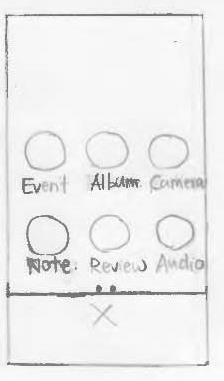 Event Album Camera
Note. Review Audio